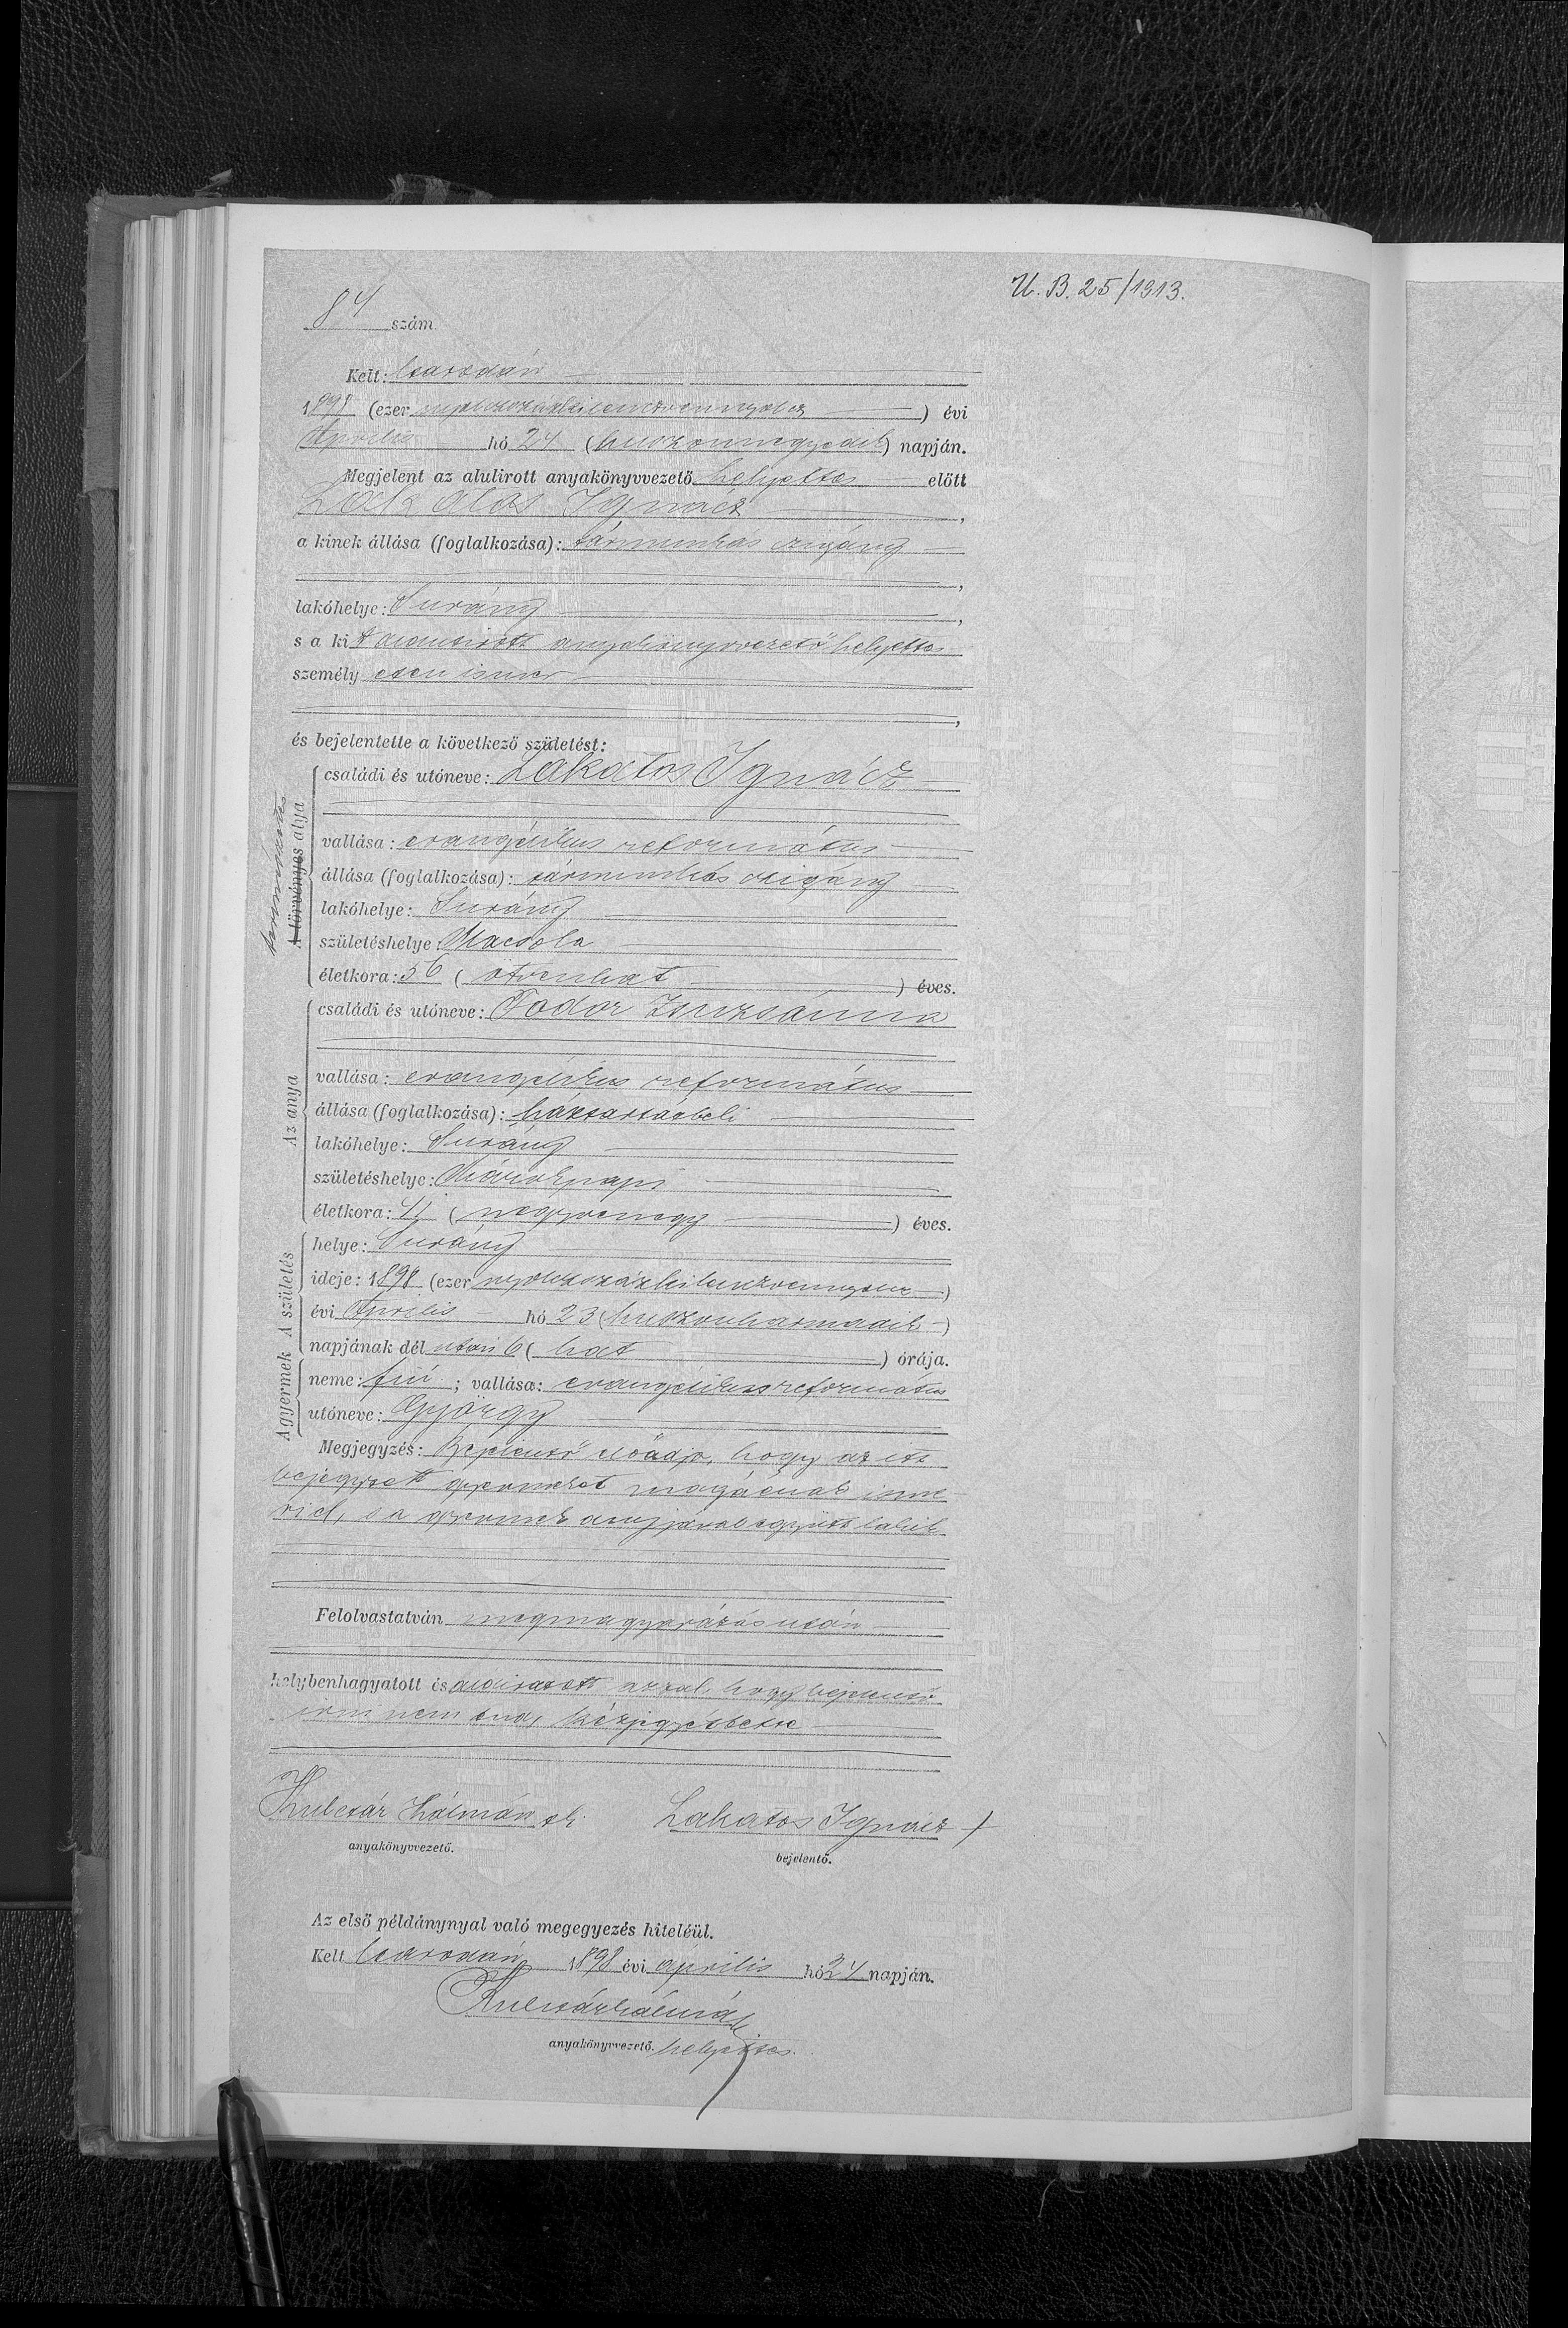 U. B. 25/1913.
84 szám
Kelt: Csarodán
1898 (ezer nyolczszázkilenczvennyolcz) évi
április hó 24 (huszonnegyedik) napján.
Megjelent az alulirott anyakönyvvezető helyettes előtt
Lakatos Ignácz,
a kinek állása (foglalkozása): sármunkás czigány
,
lakóhelye: Surány,
s a kit alulirott anyakönyvvezető helyettes
személyesen ismer
,
és bejelentette a következő születést:
természetes
A törvényes atya
családi és utóneve: Lakatos Ignácz
vallása: evangélikus református
állása (foglalkozása): sármunkás czigány
lakóhelye: Surány
születéshelye: Macsola
életkora: 56 (ötvenhat) éves.
Az anya
családi és utóneve: Fodor Zsuzsánna
vallása: evangélikus református
állása (foglalkozása): háztartásbeli
lakóhelye: Surány
születéshelye: Márokpapi
életkora: 41 (negyvenegy) éves.
A születés
helye: Surány
ideje: 1898 (ezer nyolczszázkilenczvennyolcz)
évi április hó 23 (huszonharmadik)
napjának dél után 6 (hat) órája.
A gyermek
neme: fiú; vallása: evangélikus református
utóneve: György
Megjegyzés: Bejelentő előadja, hogy az itt
bejegyzett gyermeket magáénak isme
ri el, s a gyermek anyjával együtt lakik
Felolvastatván megmagyarázás után
helybenhagyatott és aláiratott azzal, hogy bejelentő
irni nem tud, kézjegyét tette
Kulcsár Kálmán sk. Lakatos Ignácz +
anyakönyvvezető. bejelentő.
Az első példánynyal való megegyezés hiteléül.
Kelt Csarodán 1898 évi április hó 24 napján.
Kulcsár Kálmán
anyakönyvvezető. helyettes.